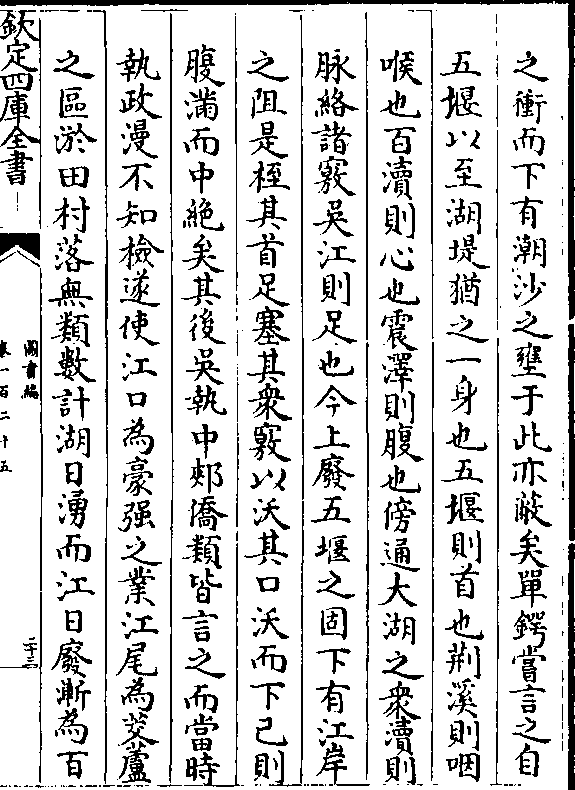 之衝而下有潮沙之壅于此亦蔽矣單鍔嘗言之自
五堰以至湖堤猶之一身也五堰則首也荆溪則咽
喉也百瀆則心也震澤則腹也傍通大湖之衆瀆則
脉絡諸竅吳江則足也今上廢五堰之固下有江岸
之阻是桎其首足塞其衆竅以沃其口沃而下已則
腹滿而中絶矣其後吳執中郟僑類皆言之而當時
執政漫不知檢遂使江口為豪强之業江尾為茭蘆
之區淤田村落無類數計湖日湧而江日廢漸為百
欽定四庫全書
圖書編
卷一百二十五
二十三